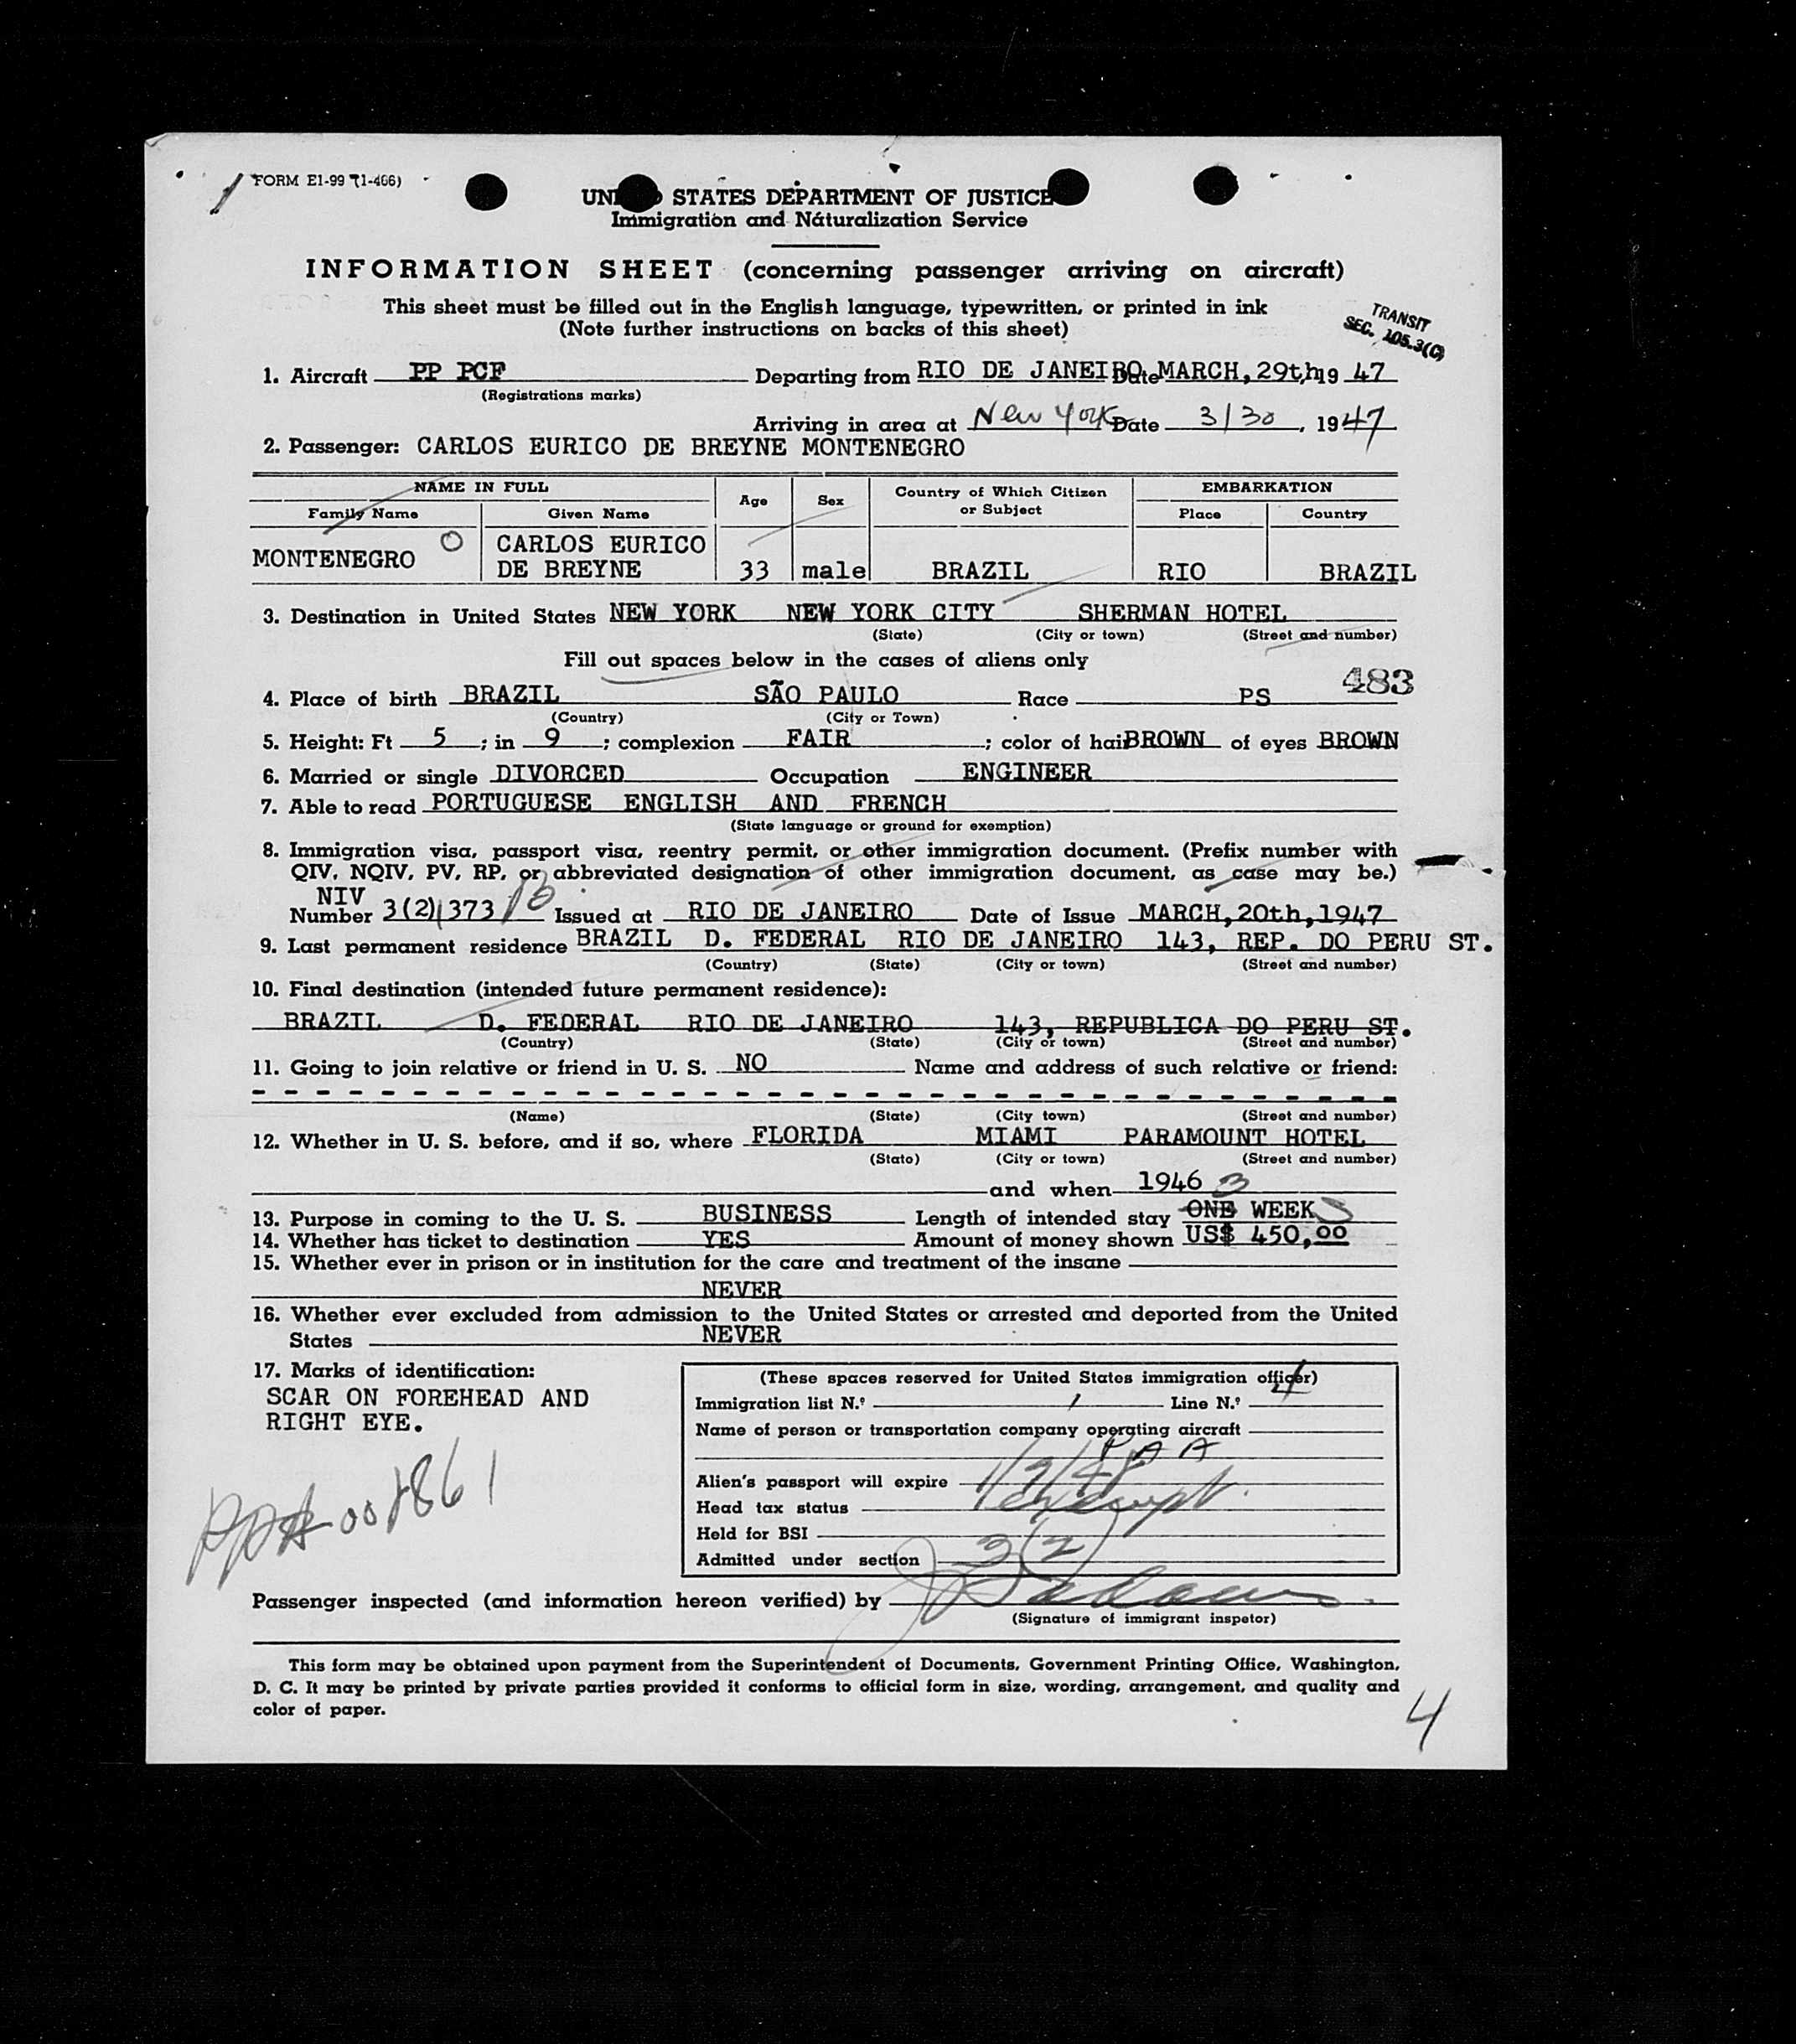 FORM E1-99 (1-466)
UNITED STATES DEPARTMENT OF JUSTICE
Immigration and Naturalization Service
INFORMATION SHEET (concerning passenger arriving on aircraft)
This sheet must be filled out in the English language, typewritten, or printed in ink
(Note further instructions on backs of this sheet)
TRANSIT
SEC. 105.3(C)
1. Aircraft PP PCF Departing from RIO DE JANEIRO Date MARCH, 29th, 19 47
(Registrations marks)
Arriving in area at New York Date 3/30, 1947
2. Passenger: CARLOS EURICO DE BREYNE MONTENEGRO
NAME IN FULL Age Sex Country of Which Citizen or Subject EMBARKATION
Family Name Given Name Place Country
MONTENEGRO CARLOS EURICO
DE BREYNE 33 male BRAZIL RIO BRAZIL
3. Destination in United States NEW YORK NEW YORK CITY SHERMAN HOTEL
(State) (City or town) (Street and number)
Fill out spaces below in the cases of aliens only
483
4. Place of birth BRAZIL SÃO PAULO Race PS
(Country) (City or Town)
5. Height: Ft 5; in 9; complexion FAIR; color of hair BROWN of eyes BROWN
6. Married or single DIVORCED Occupation ENGINEER
7. Able to read PORTUGUESE ENGLISH AND FRENCH
(State language or ground for exemption)
8. Immigration visa, passport visa, reentry permit, or other immigration document. (Prefix number with
QIV, NQIV, PV, RP, or abbreviated designation of other immigration document, as case may be.)
NIV
Number 3(2) 373 Issued at RIO DE JANEIRO Date of Issue MARCH, 20th, 1947
9. Last permanent residence BRAZIL D. FEDERAL RIO DE JANEIRO 143, REP. DO PERU ST.
(Country) (State) (City or town) (Street and number)
10. Final destination (intended future permanent residence):
BRAZIL D. FEDERAL RIO DE JANEIRO 143, REPUBLICA DO PERU ST.
(Country) (State) (City or town) (Street and number)
11. Going to join relative or friend in U. S. NO Name and address of such relative or friend:
(Name) (State) (City town) (Street and number)
12. Whether in U. S. before, and if so, where FLORIDA MIAMI PARAMOUNT HOTEL
(Stato) (City or town) (Street and number)
and when 1946 3
13. Purpose in coming to the U. S. BUSINESS Length of intended stay ONE WEEK
14. Whether has ticket to destination YES Amount of money shown US$ 450,00
15. Whether ever in prison or in institution for the care and treatment of the insane
NEVER
16. Whether ever excluded from admission to the United States or arrested and deported from the United
States NEVER
17. Marks of identification:
SCAR ON FOREHEAD AND
RIGHT EYE.
(These spaces reserved for United States immigration officer)
Immigration list N.º 1 Line N.º 4
Name of person or transportation company operating aircraft
P A A
Alien's passport will expire 1/9/48
Head tax status exempt.
Held for BSI
Admitted under section 3(2)
Passenger inspected (and information hereon verified) by
(Signature of immigrant inspetor)
This form may be obtained upon payment from the Superintendent of Documents, Government Printing Office, Washington,
D. C. It may be printed by private parties provided it conforms to official form in size, wording, arrangement, and quality and
color of paper.
4